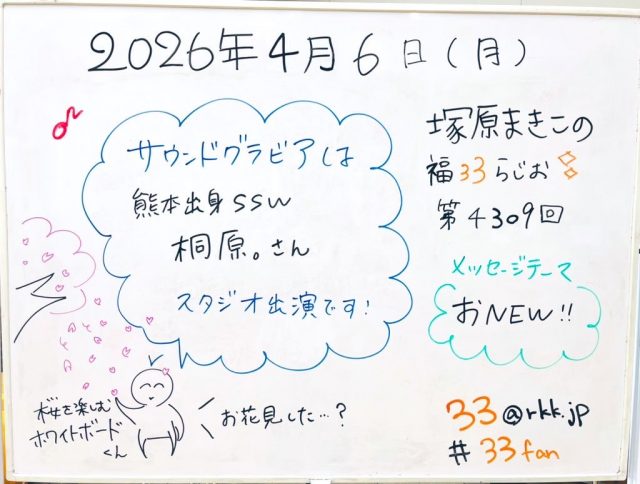 2026年4月6日(月)
サウンドグラビアは
熊本出身SSW
桐原。さん
スタジオ出演です!
塚原まきこの
福33らじお
第4309回
メッセージテーマ
おNEW!!
33@rkk.jp
#33fan
桜を楽しむ
ホワイトボード
くん
お花見した…?